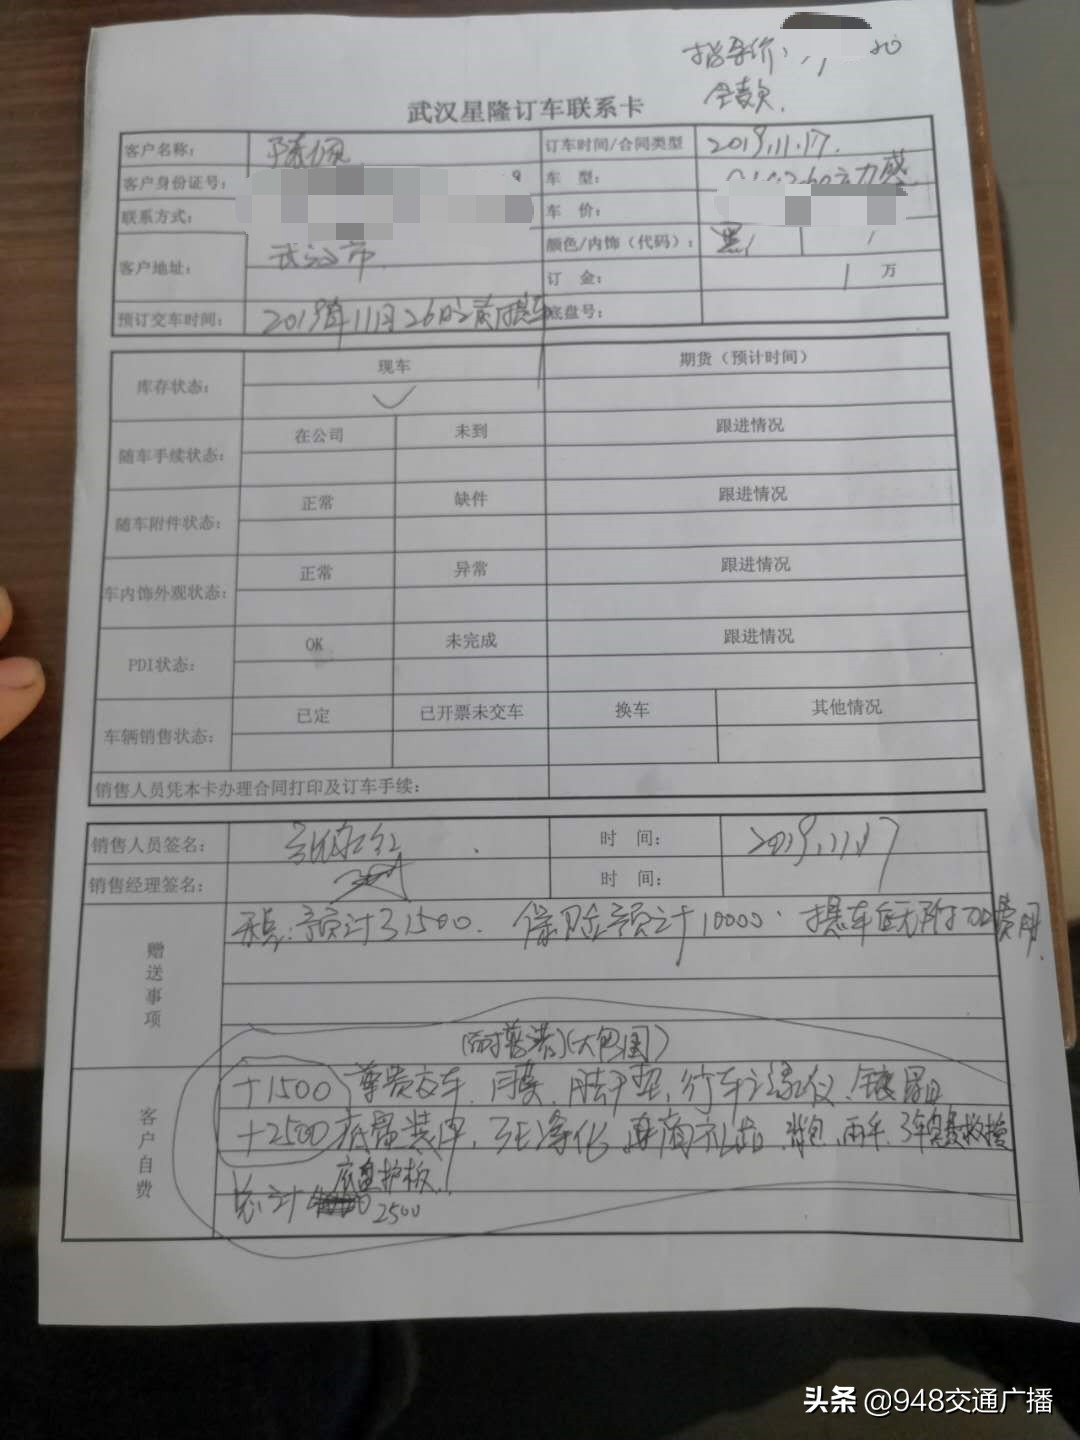 指导价:
全款.
武汉星隆订车联系卡
客户名称: 订车时间/合同类型 2019.11.17.
客户身份证号: 车 型: 动力感
联系方式: 车 价:
客户地址: 武汉市 颜色/内饰（代码）: 黑/ /
订 金: 1 万
预订交车时间: 2019年11月26日之前提车 底盘号:
库存状态: 现车 期货（预计时间）
✓
随车手续状态: 在公司 未到 跟进情况
随车附件状态: 正常 缺件 跟进情况
车内饰外观状态: 正常 异常 跟进情况
PDI状态: OK 未完成 跟进情况
车辆销售状态: 已定 已开票未交车 换车 其他情况
销售人员凭本卡办理合同打印及订车手续:
销售人员签名: 时 间: 2019.11.17
销售经理签名: 时 间:
赠送事项
预计31500. 保险预计10000. 提车后无附加费用.
(大包围)
客户自费
+1500 尊贵交车. 脚垫, 行车记录仪.
+2500 底盘装甲. 净化, 礼品. 背包, 雨伞. 3年 救援
底盘护板
总计 2500
头条 @948交通广播